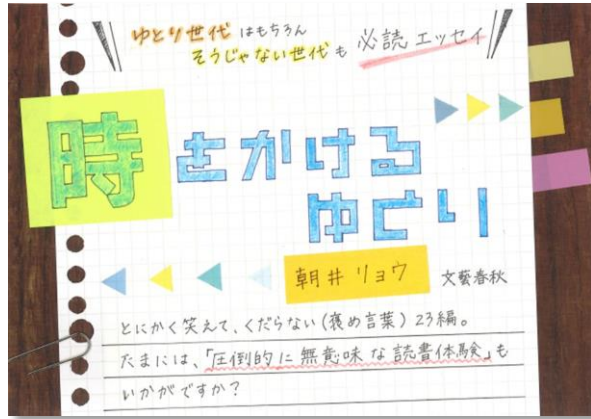 ゆとり世代はもちろん
そうじゃない世代も 必読エッセイ
時をかける
ゆとり
朝井リョウ 文藝春秋
とにかく笑えて、くだらない(褒め言葉)23編。
たまには、「圧倒的に無意味な読書体験」も
いかがですか?